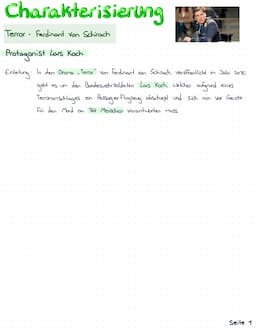 Charakterisierung
Terror - Ferdinand von Schirach
Protagonist Lars Koch
Einleitung: In den Drama „Terror" von Ferdinand von Schirach, veröffentlicht im Jahr 2015,
geht es um den Bundeswehrsoldaten Lars Koch, welcher aufgrund eines
Terroranschlages ein Passagierflugzeug abschießt und sich nun vor Gericht
für den Mord an 164 Menschen verantworten muss.
Seite 1